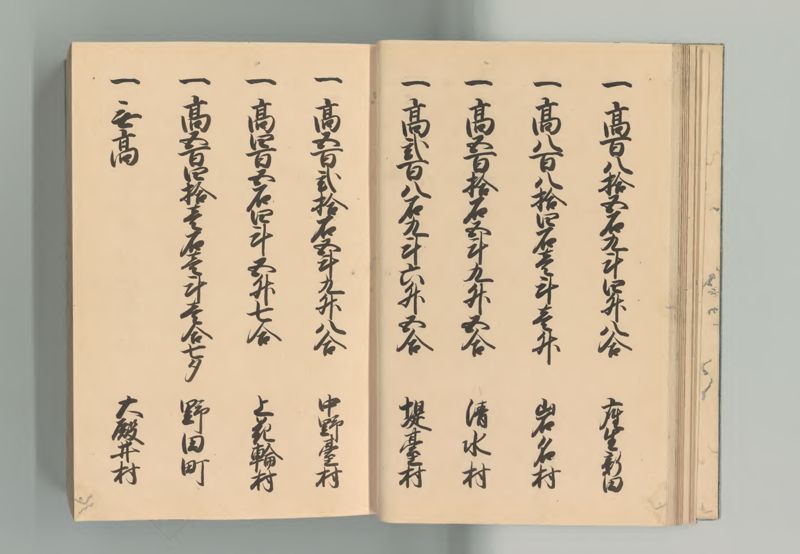 一 高百八拾五石九斗四升八合 座生新田
一 高八百八拾四石壱斗壱升 岩名村
一 高五百拾石五斗九升五合 清水村
一 高弐百八石九斗六升五合 堤臺村
一 高五百弐拾石五斗九升八合 中野臺村
一 高四百五石四斗五升七合 上花輪村
一 高五百四拾壱石壱斗壱合七夕 野田町
一 無高 大殿井村